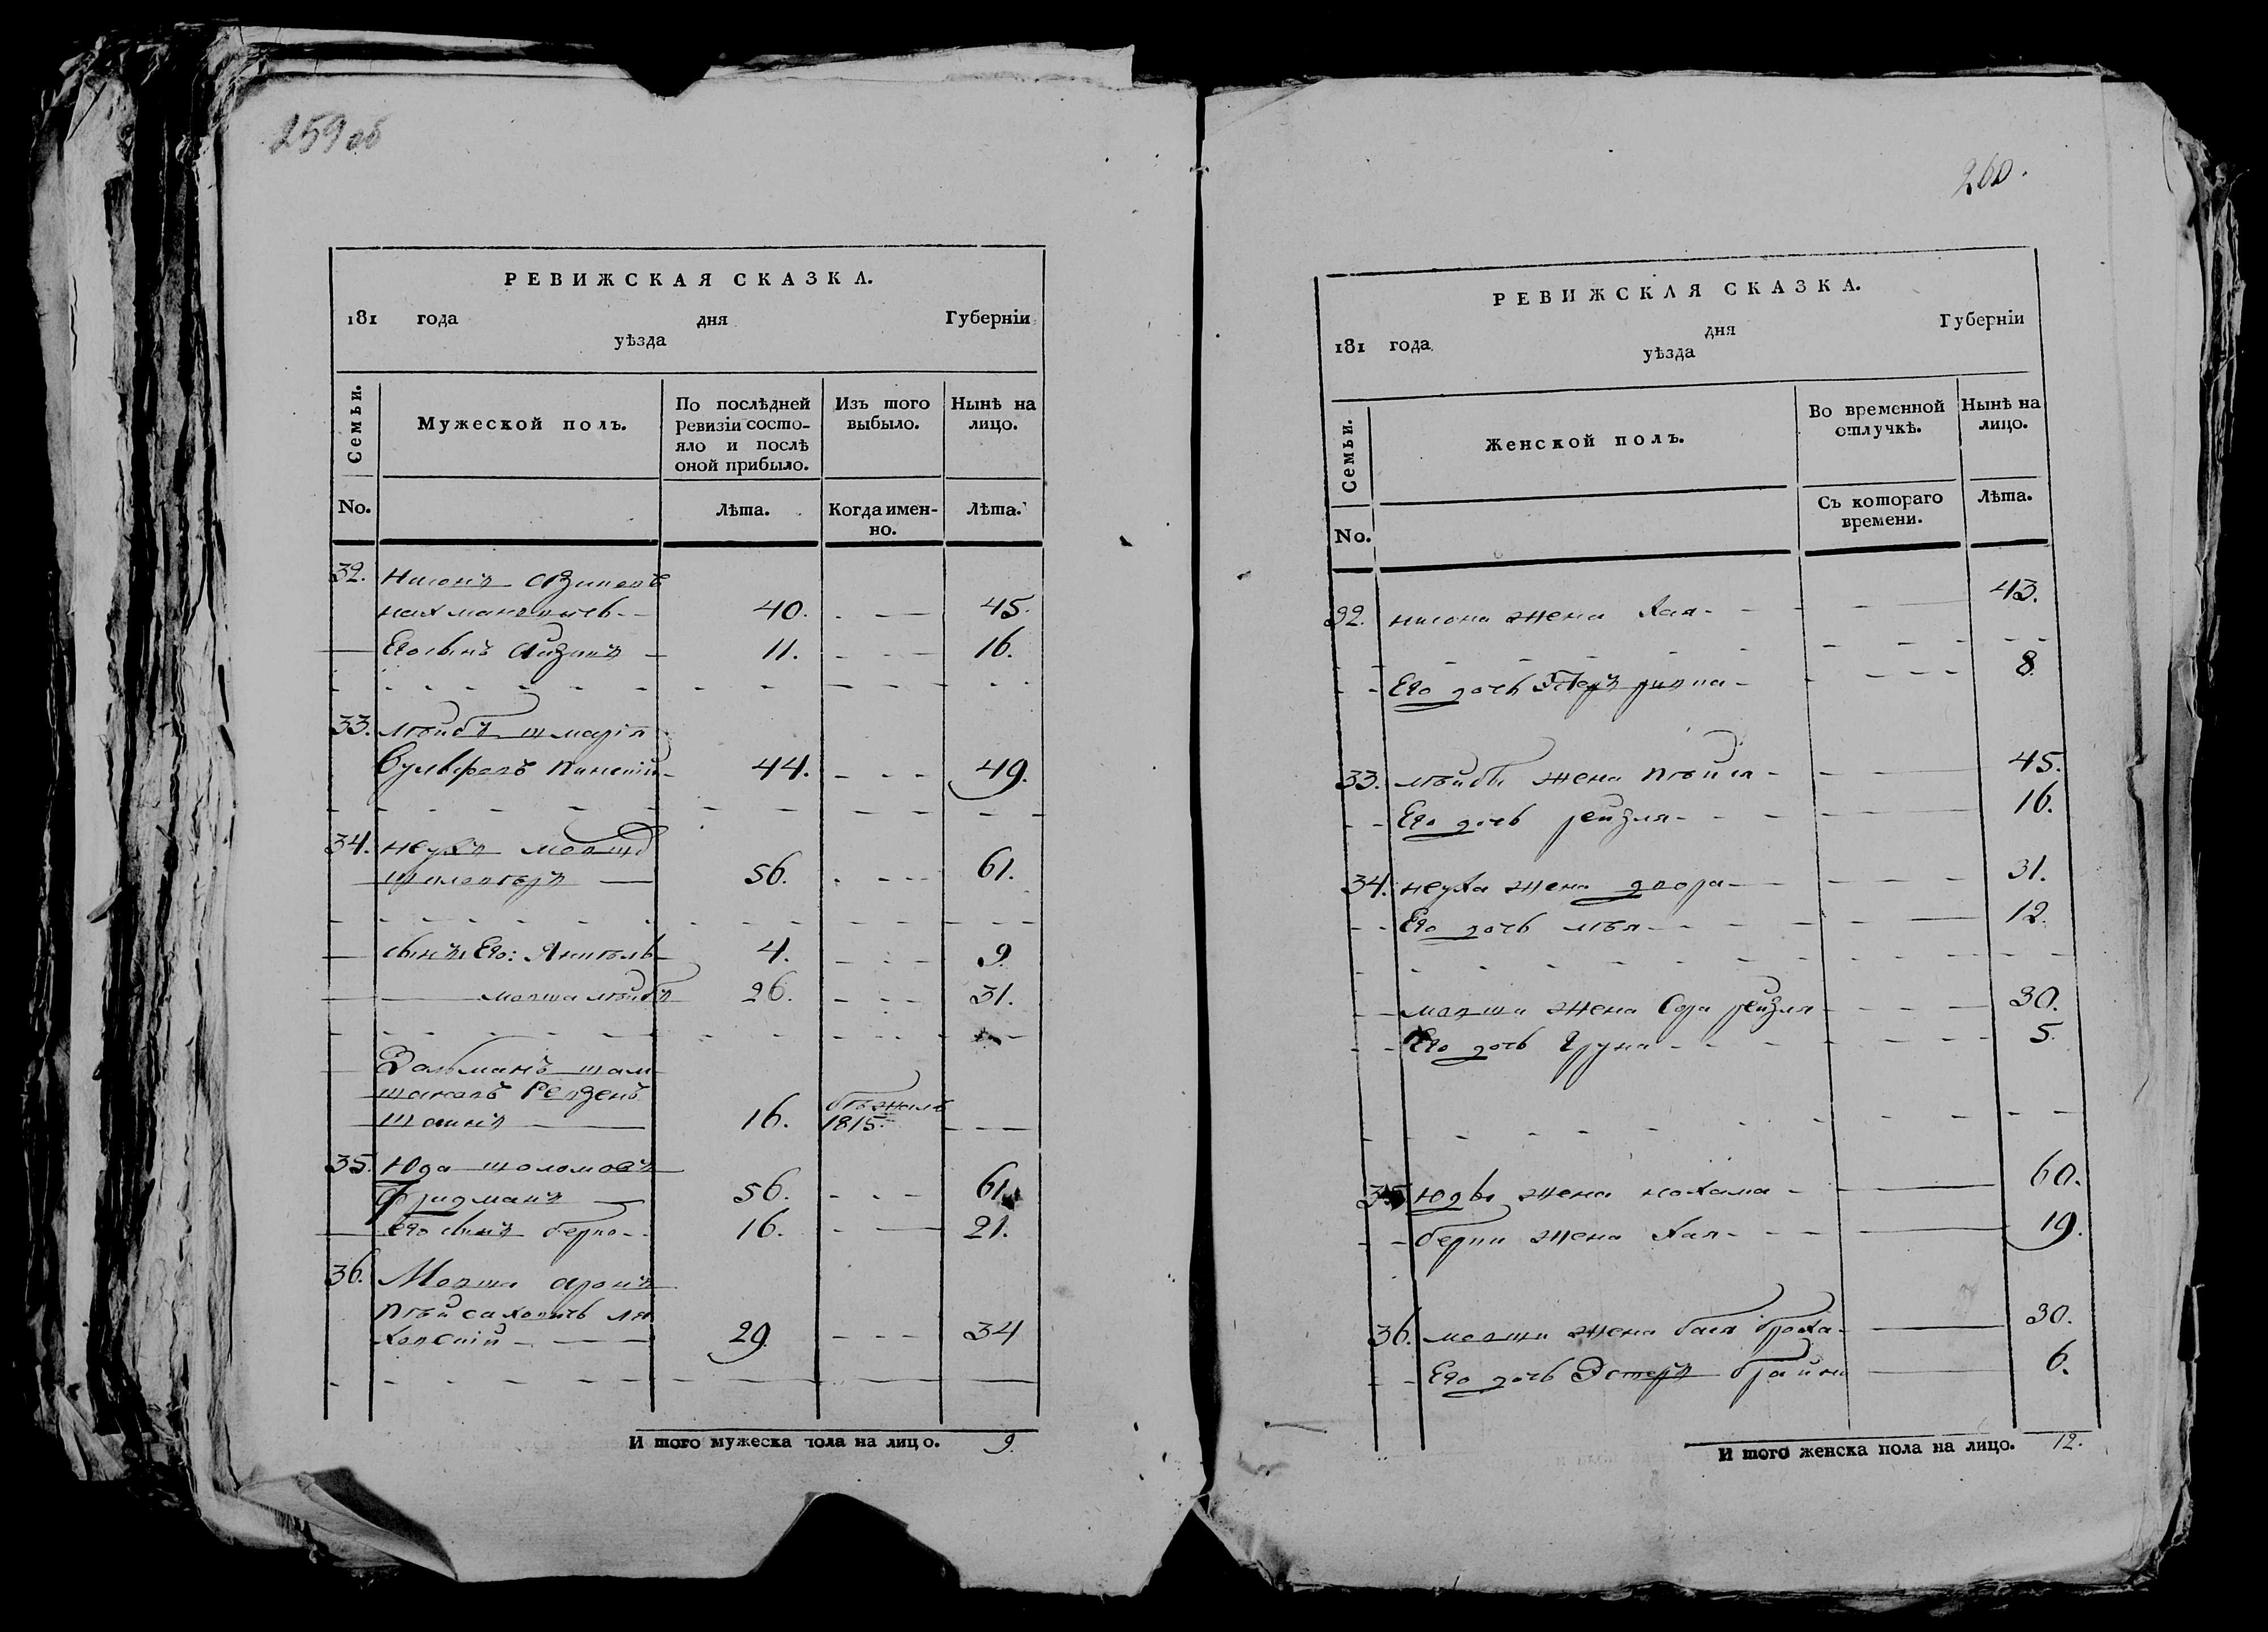 259 об
РЕВИЖСКАЯ СКАЗКА.
181 года дня Губерніи
уѣзда
Семьи.
Мужеской полъ.
По послѣдней ревизіи состояло и послѣ оной прибыло.
Изъ того выбыло.
Нынѣ на лицо.
No.
Лѣта.
Когда именно.
Лѣта.
32. Нисонъ
40. 45.
Его сынъ Айзикъ 11. 16.
33. лѣйбъ шмарія
44. 49.
34. неухъ мовша
56. 61.
сынъ Его: Янкѣль 4. 9.
мовша лѣйбъ 26. 31.
Залманъ
16. бѣжалъ 1815.
35. Юда шоломовъ
фридманъ 56. 61.
Его сынъ берко 16. 21.
36. Мовша аронъ
пѣйсаховичь ля
ховскій 29. 34
И того мужеска пола на лицо. 9.
260.
РЕВИЖСКАЯ СКАЗКА.
181 года дня Губерніи
уѣзда
Семьи.
Женской полъ.
Во временной отлучкѣ.
Нынѣ на лицо.
No.
Съ котораго времени.
Лѣта.
32. нисона жена хая 43.
Его дочь Эстеръ ривка 8.
33. лѣйбы жена пѣйся 45.
Его дочь рейзля 16.
34. неуха жена двора 31.
Его дочь лѣя 12.
мовши жена Сора рейзля 30.
Его дочь Груна 5.
35. Юды жена нохама 60.
берки жена хая 19.
36. мовши жена бася броха 30.
Его дочь Эстеръ брайна 6.
И того женска пола на лицо. 12.